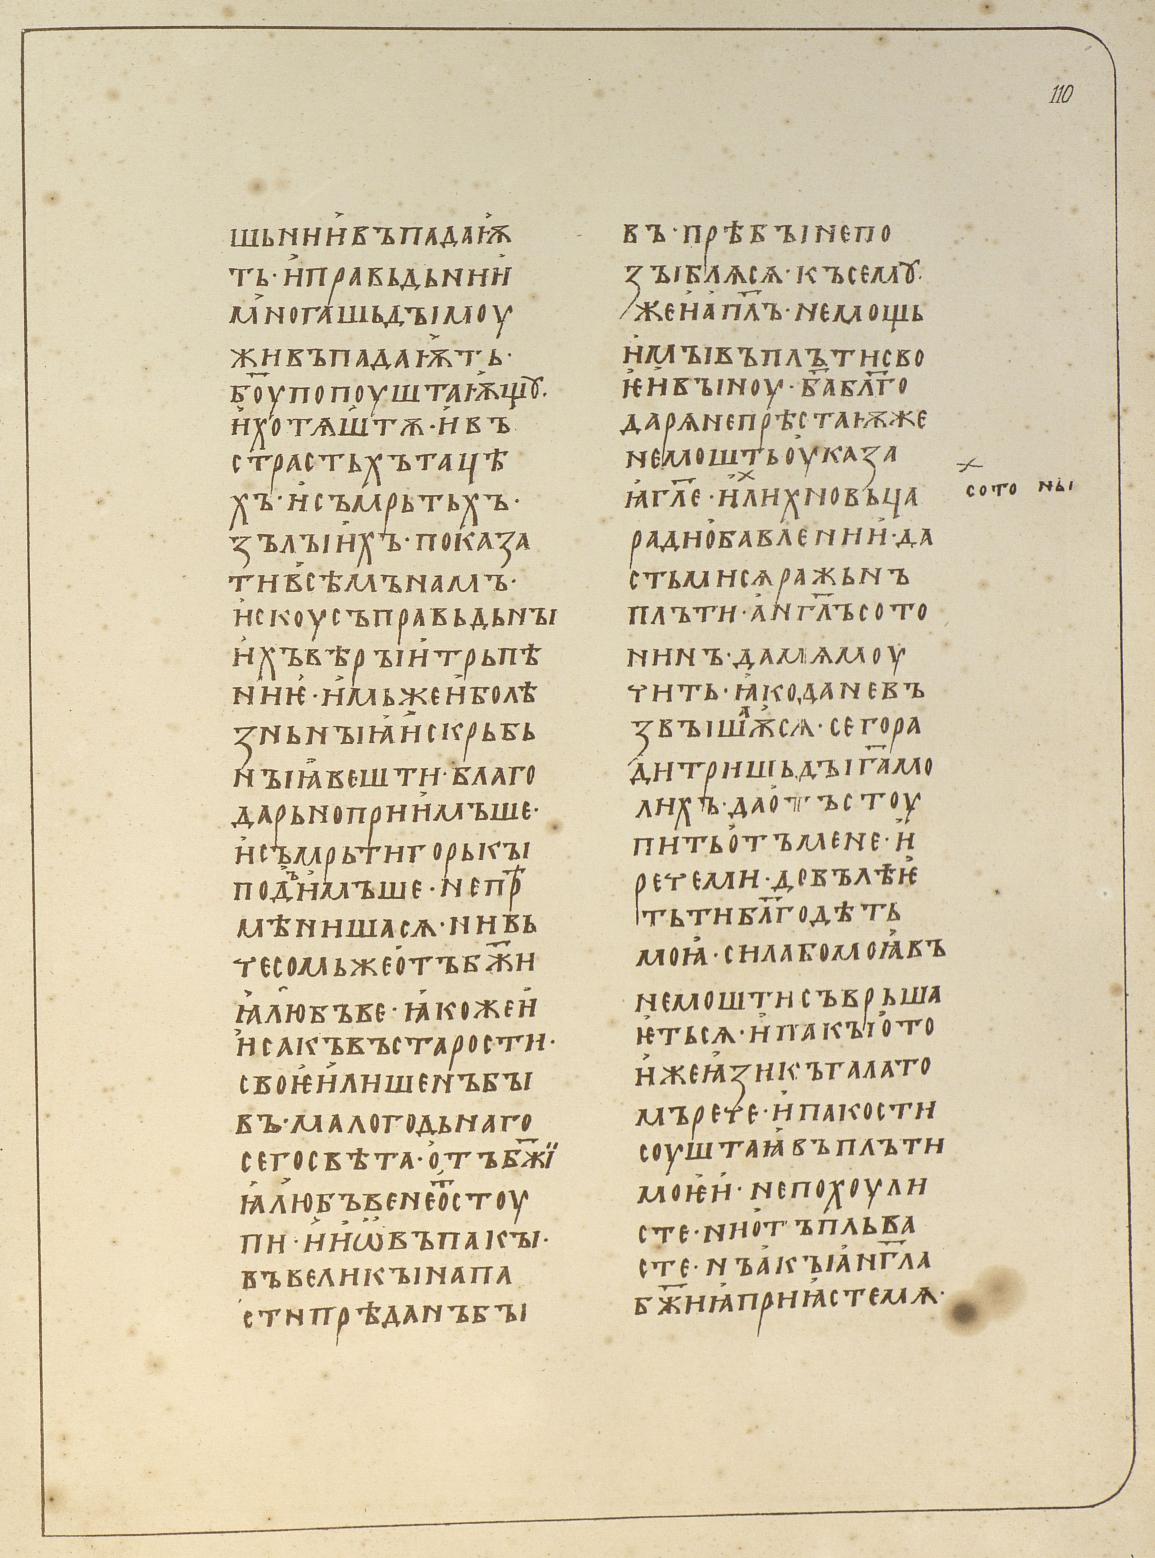 110
шьниивъпадаѭ
ть·иправьдьнии
многашьдꙑмоу
живъпадаѭть·
б҃оупопоуштаѭщꙋ.
ихотѧштѫ·ивъ
страстьхътацѣ
хъ·исъмрьтьхъ·
зълꙑихъ·показа
тивсѣмънамъ·
искоусъправьдьнꙑ
ихъвѣрꙑитрьпѣ
ниѥ·имьжеиболѣ
зньнꙑꙗискрьбь
нꙑꙗвешти·благо
дарьноприимъше·
исъмрьтигорькꙑ
подъимъше·непр
мѣнишасѧ·нивь
чесомьжеотъбж҃и
ꙗлюбъве·ꙗкожеи
исакъвъстарости·
своѥилишенъбꙑ
въ·малогодьнаго
сегосвѣта·отъбж҃ї
ꙗлюбъвенеѿстоу
пи·ииѡвъпакꙑ·
въвеликꙑнапа
стипрѣданъбꙑ
въ·прѣбꙑнепо
зꙑблѧсѧ·късемꙋ·
жеиап҃лъ·немощь
имꙑвъплътисво
ѥивꙑноу·б҃абл҃го
дарѧнепрѣстаѭже
немоштьоуказа
ꙗгл҃е·илихновьца
радиобавлении·да
стьмисѧражьнъ
плъти·анг҃лъсото
нинъ·дамѧмоу
чить·ꙗкоданевъ
звꙑшаѭсѧ·сегора
дитришьдꙑг҃амо
лихъ·даотъстоу
питьотъмене·и
речеми·довълѣѥ
тьтибл҃годѣть
моꙗ·силабомоꙗвъ
немоштисъврьша
ѥтьсѧ·ипакꙑото
ижеꙗзикъгалато
мърече·ипакости
соуштаꙗвъплъти
моѥи·непохоули
сте·ниотъпльва
сте·нъакꙑанг҃ла
бж҃иꙗприꙗстемѧ·
сото нꙑ